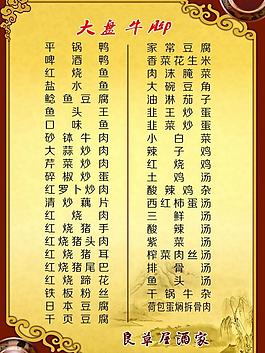 大盘牛脚
平锅鸭
啤酒鸭
红烧鱼
盐水鱼
鲶鱼豆腐
鱼头王
口味鱼
砂钵牛肉
大蒜炒肉
芹菜炒肉
碎椒炒蛋
红萝卜炒肉
清炒藕片
红烧肉
红烧猪手
红烧猪头肉
红烧猪耳
红烧猪尾巴
红烧蹄花
铁板粉丝
日本豆腐
千页豆腐
家常豆腐
香菜花生米
肉沫腌菜
大碗豆角
油淋茄子
韭王炒蛋
韭菜炒蛋
小白菜
辣子鸡
红烧鸡
土鸡汤
酸辣鸡杂
西红柿蛋汤
三鲜汤
酸辣汤
紫菜汤
榨菜肉丝汤
排骨汤
鱼头汤
干锅牛杂
荷包蛋焖拆骨肉
良草屋酒家